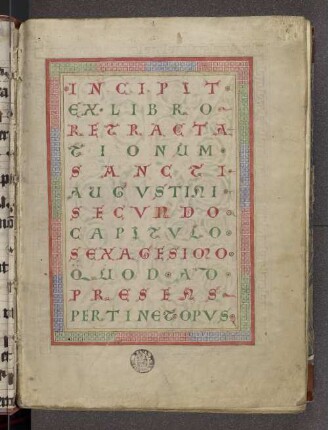 INCIPIT
EX LIBRO
RETRACTA
TIONUM
SANCTI
AUGVSTINI
SECVNDO
CAPITVLO
SEXAGESIMO
QUOD AD
PRESENS
PERTINET OPVS